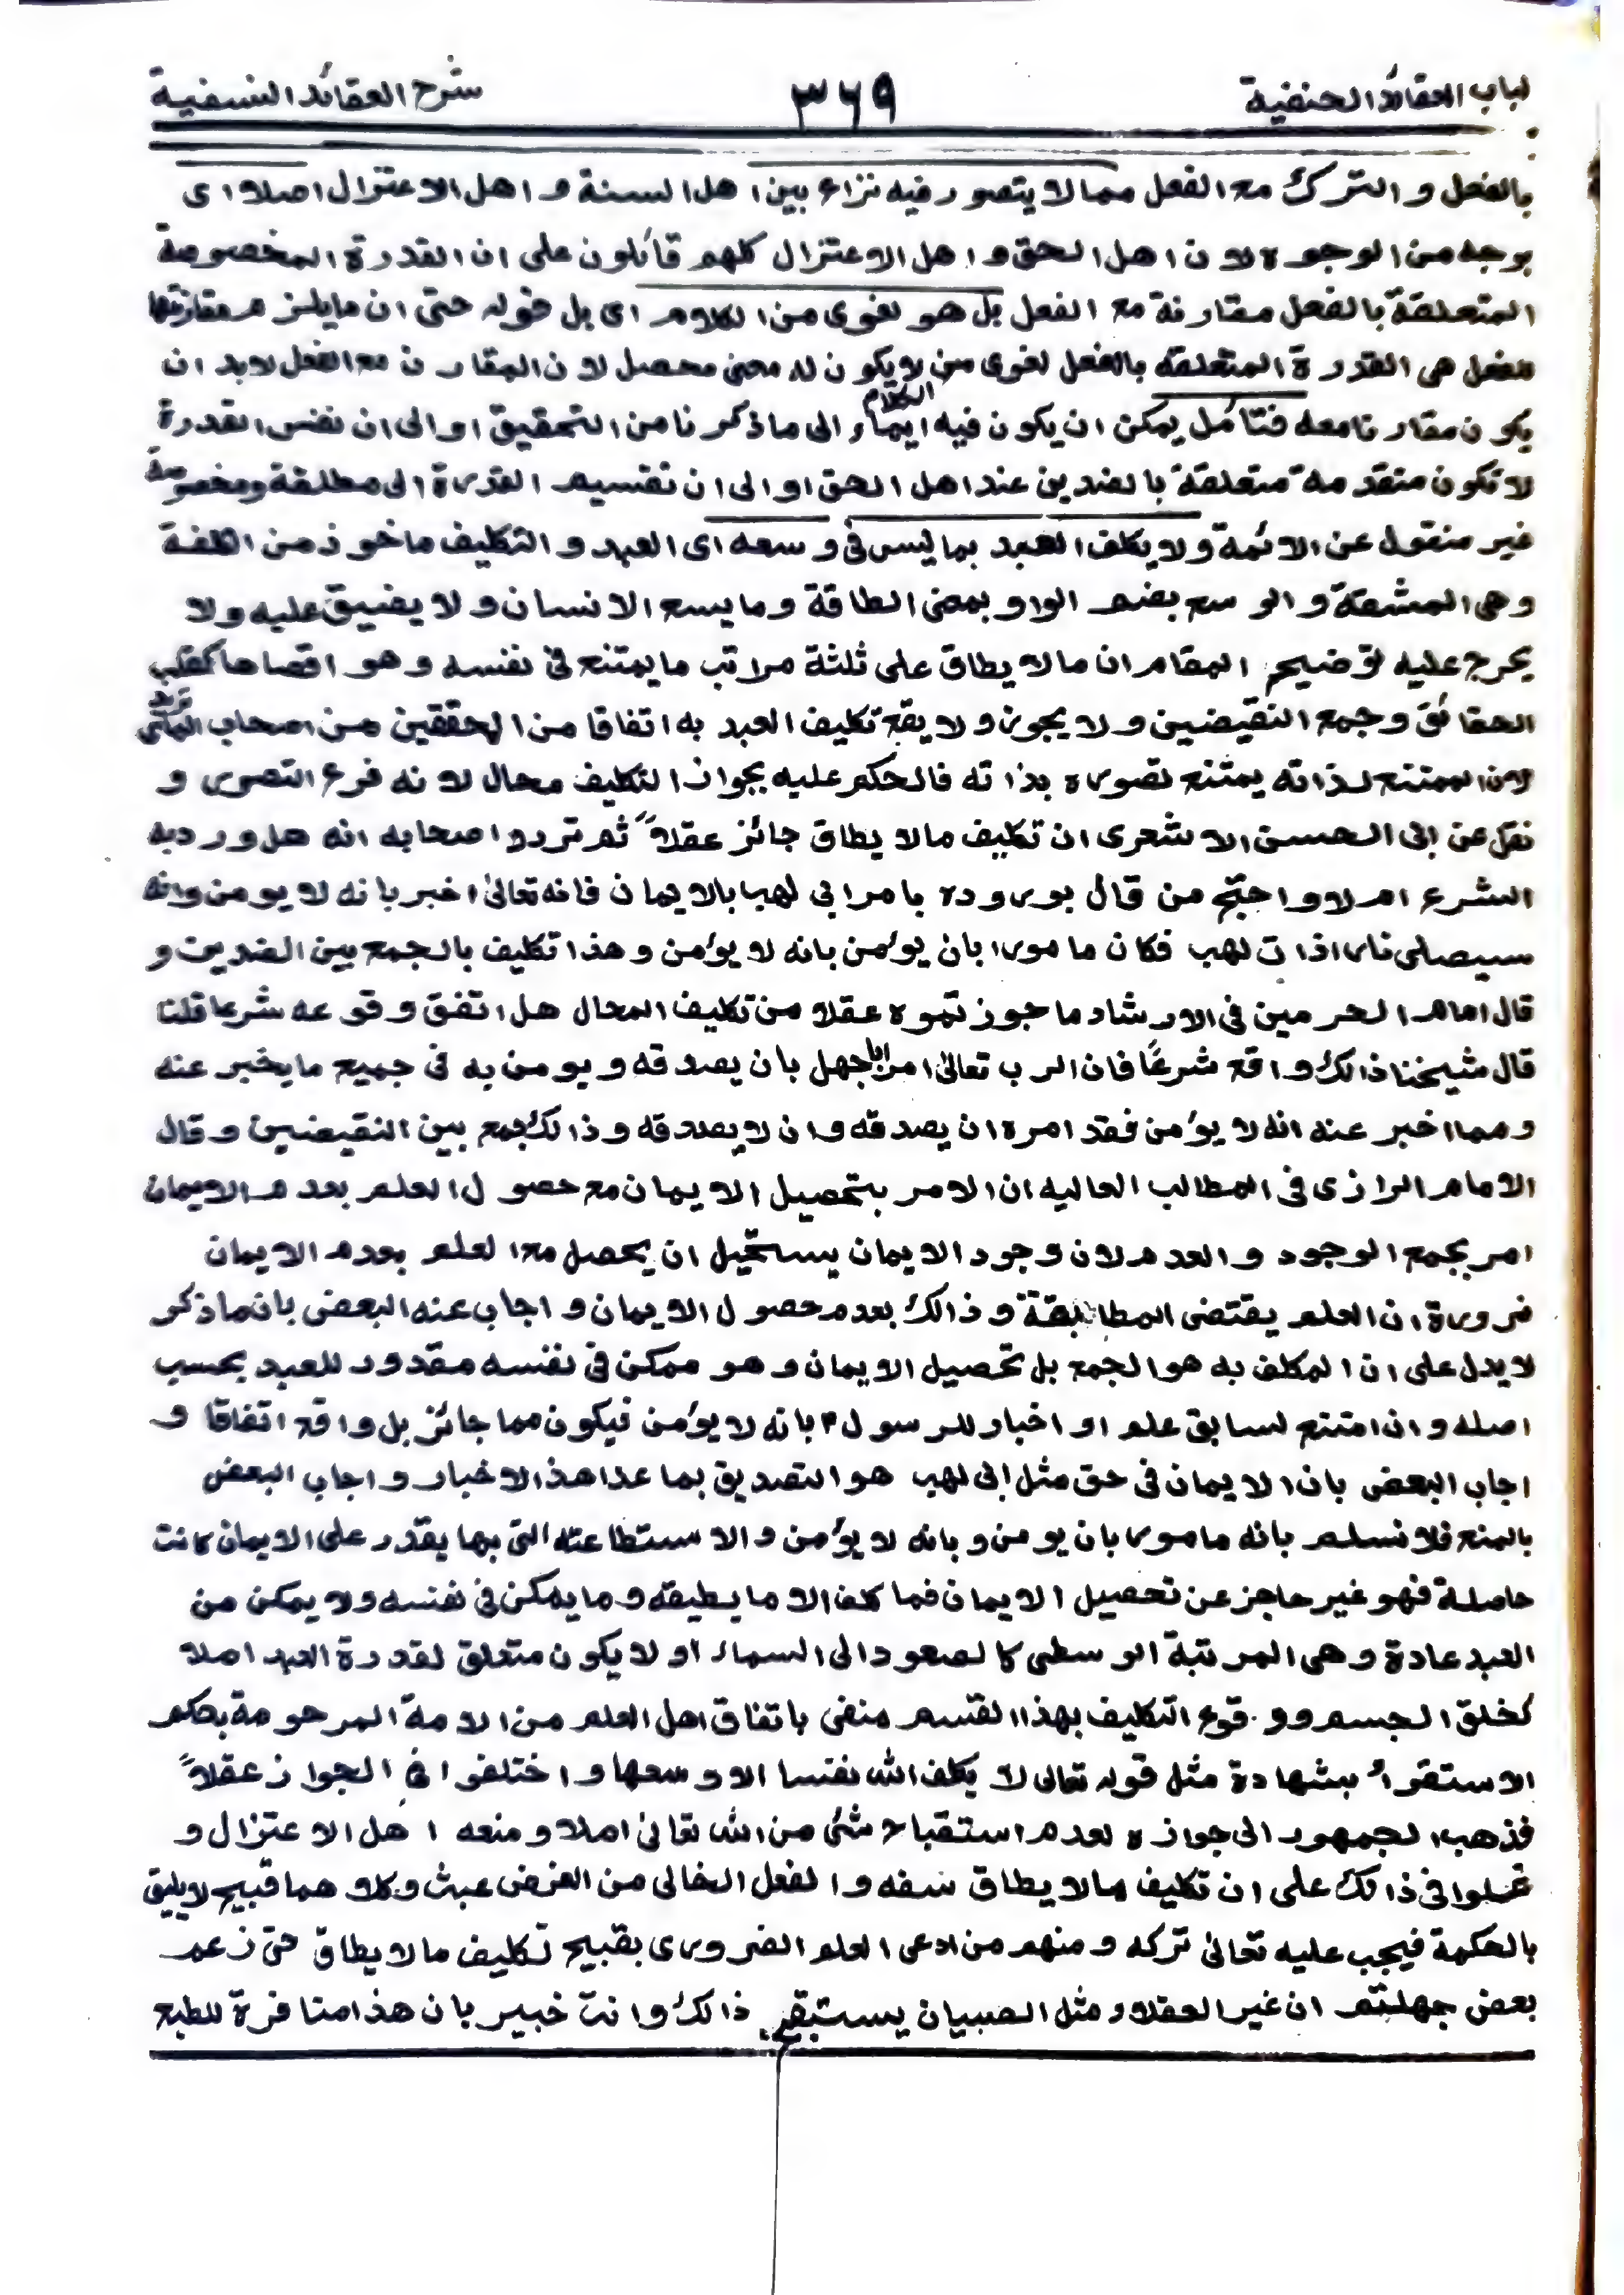 لباب العقائد الحنفية ٣٦٩ شرح العقائد النسفية
بالفعل والترك مع الفعل مما لا يتصور فيه نزاع بين اهل السنة و اهل الاعتزال اصلا اى
بوجه من الوجوه لان اهل الحق و اهل الاعتزال كلهم قائلون على ان القدرة المخصوصة
المتعلقة بالفعل مقارنة مع الفعل بل هو لغوى من الكلام اى بل قوله حتى ان ما يلزم مقارنتها
للفعل هى القدرة المتعلقه بالفعل لغوى من الكلام لا يكون له معنى محصل لان المقارن مع الفعل لابد ان
يكون مقارنا معه فتأمل يمكن ان يكون فيه ايماء الى ما ذكرنا من التحقيق او الى ان نفس القدرة
لا تكون متقدمة متعلقة بالضدين عند اهل الحق او الى ان تقسيم القدرة الى مطلقة ومخصوصة
غير منقول عن الائمة ولا يكلف العبد بما ليس فى وسعه اى العبد و التكليف ماخوذ من الكلفة
وهى المشقة و الوسع بضم الواو بمعنى الطاقة وما يسع الانسان و لا يضيق عليه ولا
يحرج عليه توضيح المقام ان ما لا يطاق على ثلثة مراتب ما يمتنع فى نفسه وهو اقصاها كقلب
الحقائق وجمع النقيضين ولا يجوز ولا يقع تكليف العبد به اتفاقا من المحققين من اصحاب الماتريدى
لان الممتنع لذاته يمتنع تصوره بذاته فالحكم عليه بجواز التكليف محال لانه فرع التصور و
نقل عن ابى الحسن الاشعرى ان تكليف ما لا يطاق جائز عقلاً ثم تردد اصحابه انه هل ورد به
الشرع ام لا و احتج من قال بوروده بامر ابى لهب بالايمان فانه تعالىٰ اخبر بانه لا يومن وانه
سيصلى نارا ذات لهب فكان مامورا بان يؤمن بانه لا يؤمن وهذا تكليف بالجمع بين الضدين و
قال امام الحرمين فى الارشاد ما جوزتموه عقلا من تكليف المحال هل اتفق وقوعه شرعا قلنا
قال شيخنا ذالك واقع شرعًا فان الرب تعالىٰ امر ابا جهل بان يصدقه و يومن به فى جميع ما يخبر عنه
ومما اخبر عنه انه لا يؤمن فقد امره ان يصدقه و ان لا يصدقه و ذالك جمع بين النقيضين وقال
الامام الرازى فى المطالب العاليه ان الامر بتحصيل الايمان مع حصول العلم بعدم الايمان
امر بجمع الوجود والعدم لان وجود الايمان يستحيل ان يحصل مع العلم بعدم الايمان
ضرورة ان العلم يقتضى المطابقة و ذالك بعدم حصول الايمان و اجاب عنه البعض بان ما ذكر
لا يدل على ان المكلف به هو الجمع بل تحصيل الايمان وهو ممكن فى نفسه مقدور للعبد بحسب
اصله و ان امتنع لسابق علم او اخبار للرسول بانه لا يؤمن فيكون مما جائز بل واقع اتفاقا و
اجاب البعض بان الايمان فى حق مثل ابى لهب هو التصديق بما عدا هذا الاخبار و اجاب البعض
بالمنع فلا نسلم بانه مامورا بان يومن و بانه لا يؤمن والاستطاعته التى بها يقدر على الايمان كانت
حاصلة فهو غير عاجز عن تحصيل الايمان فما كلف الا ما يطيقه وما يمكن فى نفسه ولا يمكن من
العبد عادة وهى المرتبة الوسطى كالصعود الى السماء او لا يكون متعلق لقدرة العبد اصلا
كخلق الجسم و وقوع التكليف بهذا القسم منفى باتفاق اهل العلم من الامة المرحومة بحكم
الاستقراء بشهادة مثل قوله تعالى لا يكلف الله نفسا الا وسعها و اختلفوا فى الجواز عقلاً
فذهب الجمهور الى جوازه لعدم استقباح شئ من الله تعالىٰ اصلا و منعه اهل الاعتزال و
غلوا فى ذالك على ان تكليف ما لا يطاق سفه و الفعل الخالى من الغرض عبث وكلاهما قبيح لا يليق
بالحكمة فيجب عليه تعالىٰ تركه ومنهم من ادعى العلم الضرورى بقبيح تكليف ما لا يطاق حتى زعم
بعض جهلتهم ان غير العقلاء مثل الصبيان يستبقح ذالك و انت خبير بان هذا منافرة للطبع